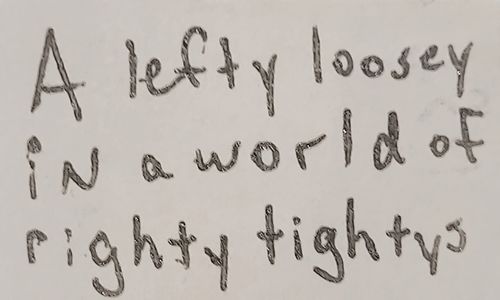 A lefty loosey
iN a world of
righty tightys